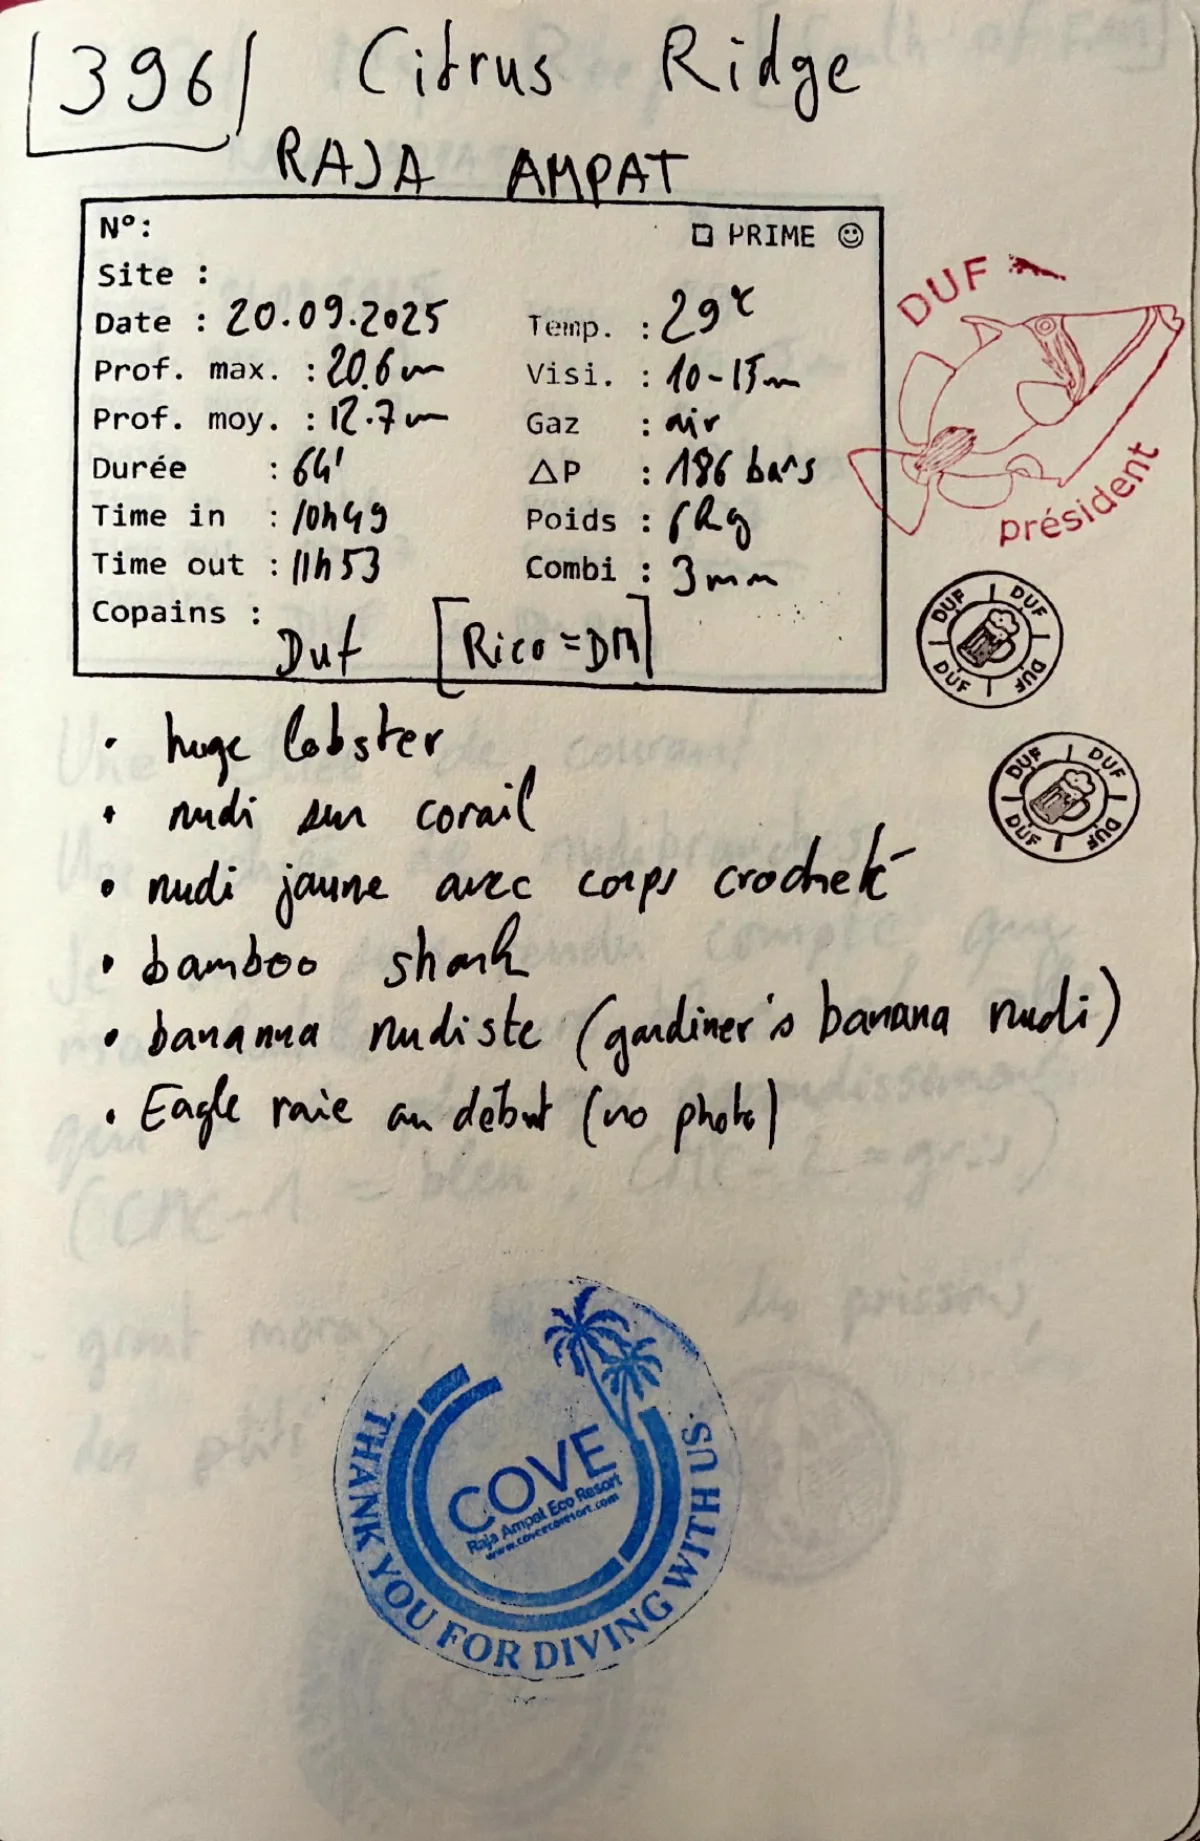 396 Citrus Ridge
RAJA AMPAT
N°: PRIME
Site :
Date : 20.09.2025 Temp. : 29°C
Prof. max. : 20.6m Visi. : 10-15m
Prof. moy. : 12.7m Gaz : air
Durée : 64' ΔP : 186 bars
Time in : 10h49 Poids :
Time out : 11h53 Combi : 3mm
Copains : Duf [Rico=DM]
DUF
président
DUF DUF DUF DUF
DUF DUF DUF DUF
• huge lobster
• nudi sur corail
• nudi jaune avec corps crocheté
• bamboo shark
• bananna nudiste (gardiner's banana nudi)
• Eagle raie au début (no photo)
COVE
Raja Ampat Eco Resort
www.coveecoresort.com
THANK YOU FOR DIVING WITH US